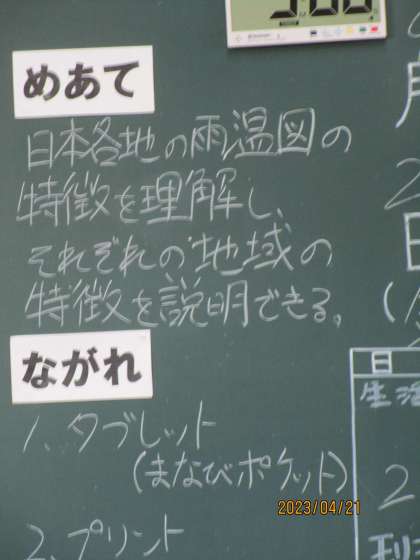 めあて
日本各地の雨温図の
特徴を理解し、
それぞれの地域の
特徴を説明できる。
ながれ
1、タブレット
(まなびポケット)
2、プリント
日
生活
2
2023/04/21